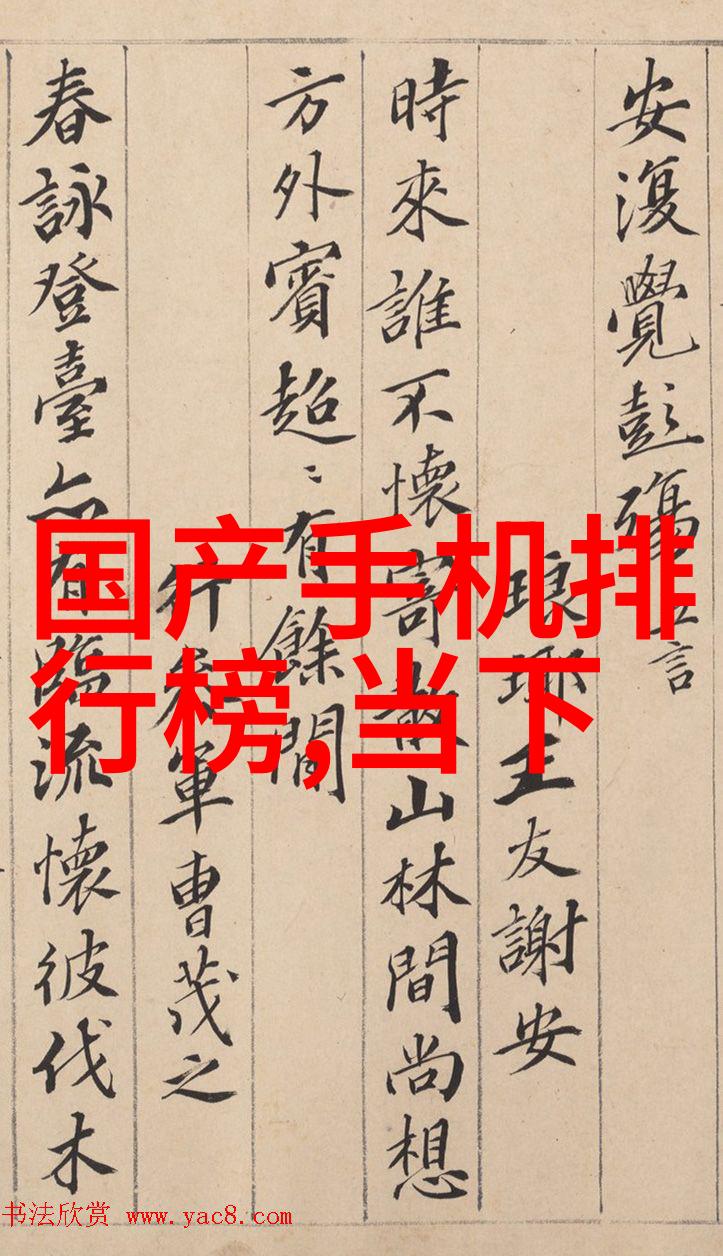 安復覺彭殤五言
琅琊王友謝安
時來誰不懷寄散山林間尚想
方外賓超〻有餘閒
行參軍曹茂之
春詠登臺亦有臨流懷彼伐木
国产手机排
行榜,当下
书法欣赏 www.yac8.com